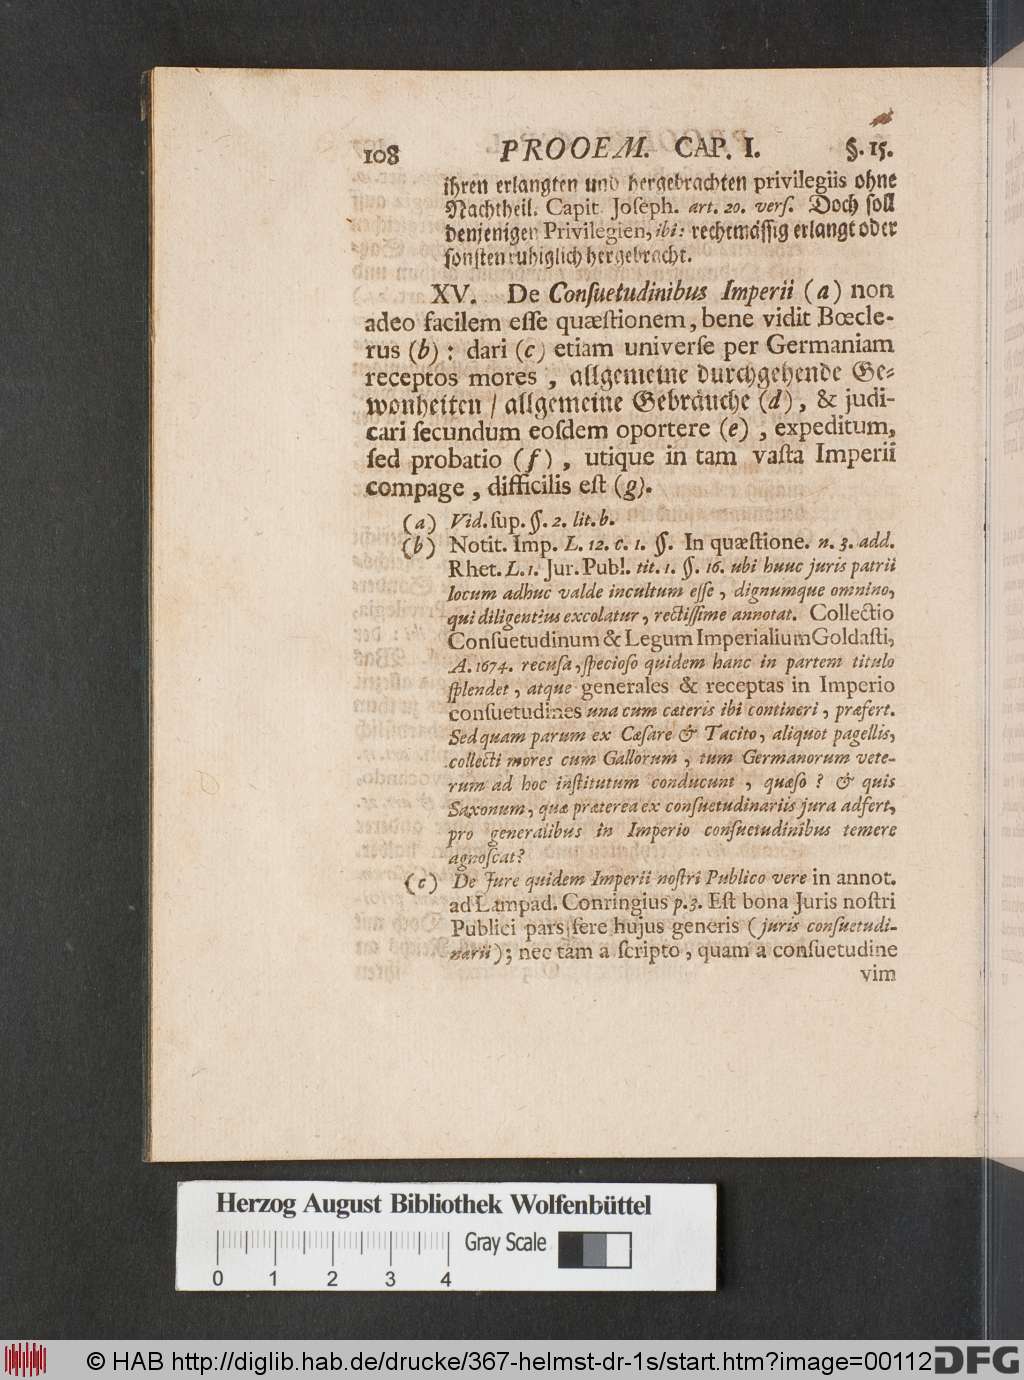 108 PROOEM. CAP. I. §. 15.
ihren erlangten und hergebrachten privilegiis ohne
Nachtheil. Capit. Joſeph. art. 20. verſ. Doch ſoll
denjenigen Privilegien, ibi: rechtmäſſig erlangt oder
ſonſten ruhiglich hergebracht.
XV. De Conſuetudinibus Imperii (a) non
adeo facilem eſſe quæſtionem, bene vidit Bœcle-
rus (b): dari (c) etiam univerſe per Germaniam
receptos mores, allgemeine durchgehende Ge-
wonheiten / allgemeine Gebräuche (d), & judi-
cari ſecundum eosdem oportere (e), expeditum,
ſed probatio (f), utique in tam vaſta Imperii
compage, difficilis eſt (g).
(a) Vid. ſup. §. 2. lit. b.
(b) Notit. Imp. L. 12. c. 1. §. In quæſtione. n. 3. add.
Rhet. L. 1. Jur. Publ. tit. 1. §. 16. ubi hunc juris patrii
locum adhuc valde incultum eſſe, dignumque omnino,
qui diligentius excolatur, rectiſſime annotat. Collectio
Conſuetudinum & Legum Imperialium Goldaſti,
A. 1674. recuſa, ſpecioſo quidem hanc in partem titulo
ſplendet, atque generales & receptas in Imperio
conſuetudines una cum cæteris ibi contineri, præfert.
Sed quam parum ex Cæſare & Tacito, aliquot pagellis,
collecti mores cum Gallorum, tum Germanorum vete-
rum ad hoc inſtitutum conducunt, quæſo? & quis
Saxonum, quæ præterea ex conſuetudinariis jura adfert,
pro generalibus in Imperio conſuetudinibus temere
agnoſcat?
(c) De Jure quidem Imperii noſtri Publico vere in annot.
ad Lampad. Conringius p. 3. Eſt bona Juris noſtri
Publici pars fere hujus generis (juris conſuetudi-
narii); nec tam a ſcripto, quam a conſuetudine
vim
Herzog August Bibliothek Wolfenbüttel
Gray Scale
0 1 2 3 4
© HAB http://diglib.hab.de/drucke/367-helmst-dr-1s/start.htm?image=00112
DFG